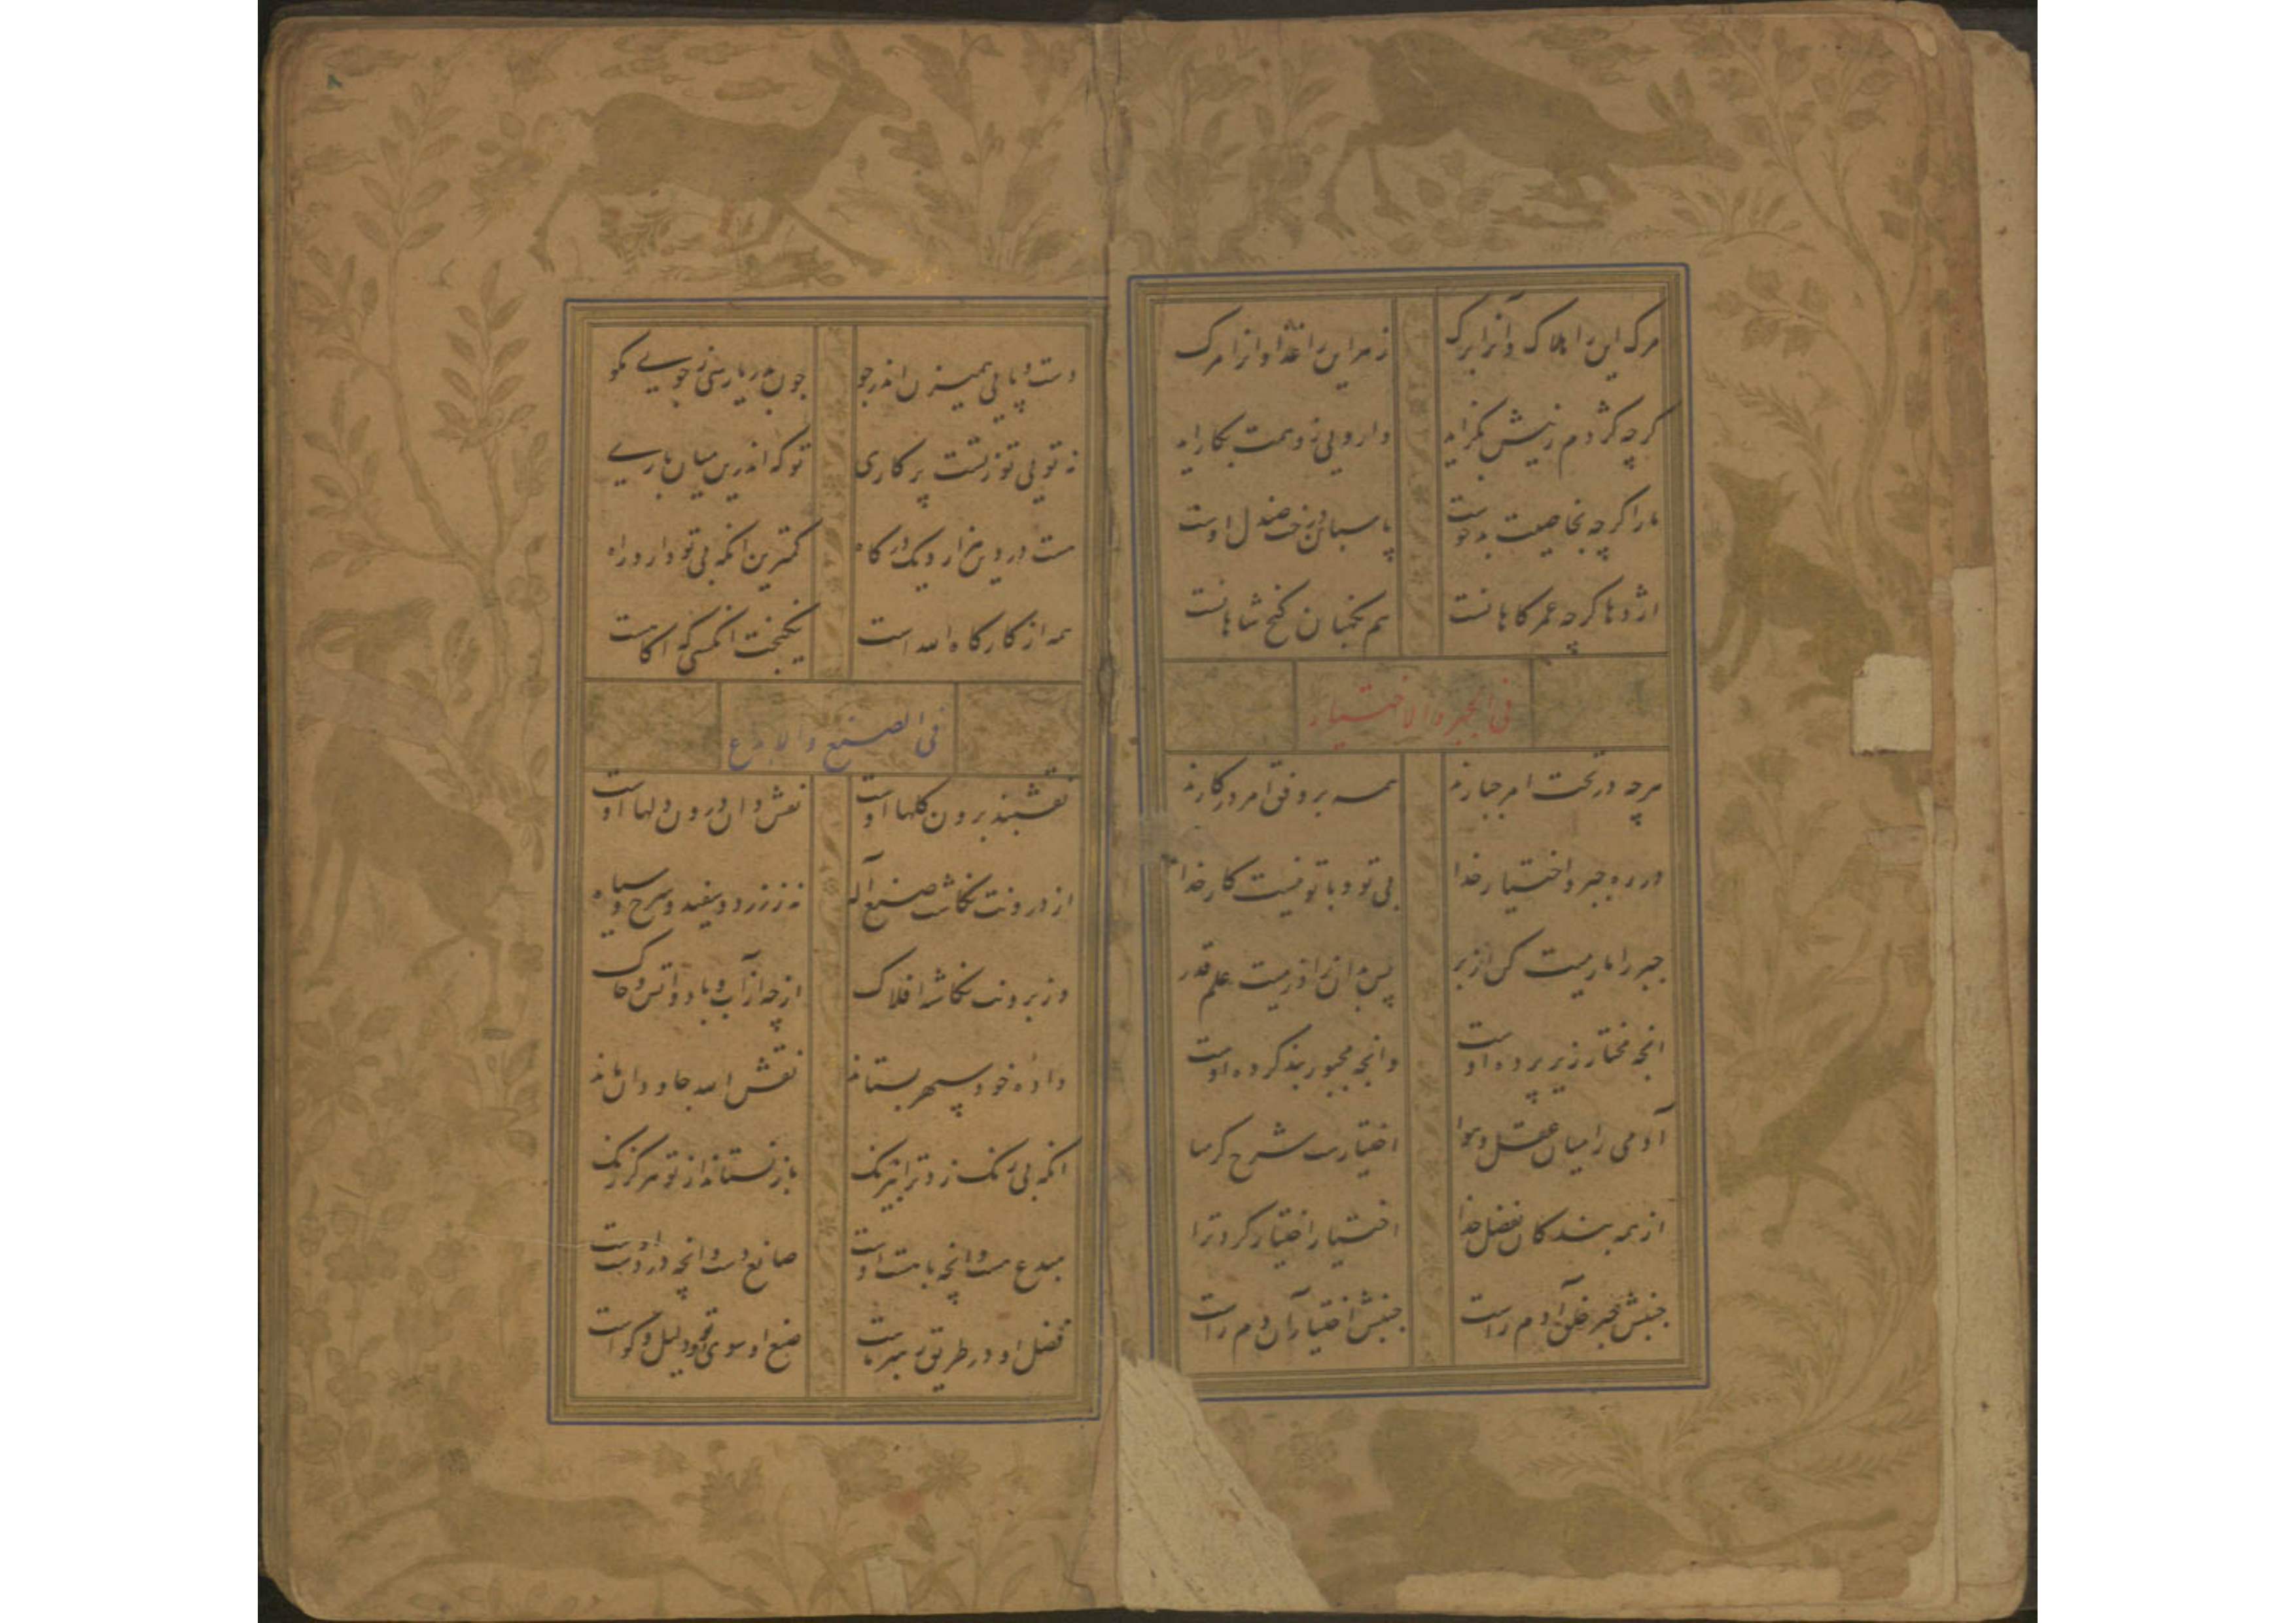 مرک این را هلاک و آنرا برک
زهر این را غذا و انرا مرک
کرچه کژدم زنیش بکزاید
دارویی زو همت بکار اید
مار اکرچه بخاصیت بدخوست
پاسبان درخت صندل اوست
اژدها کرچه عمر کاهانست
هم نکهبان کنج شاهانست
فی الجبر والاختیار
هرچه در تحت امر جبارند
همه بر وفق امر در کارند
در ره جبر و اختیار خدا
بی تو و با تو نیست کار خدا
جبر را مارمیت کن از بر
پس بدان از اذرمیت علم قدر
انچه مختار زیر پرده اوست
وانچه مجبور بند کرده اوست
آدمی را میان عقل و هوا
اختیارست شرح کرمنا
از همه بندکان بفضل خدا
اختیار اختیار کرد ترا
جنبش جبر خلق آدم راست
جنبش اختیار آن دم راست
دست و پایی همیزن اندر جو
چون بدریا رسی زجویے مکو
نه تویی تو زتست پر کاری
تو که اندرین میان بارے
هست در وی هزار و یک درکاه
کمترین انکه بی تو دارد راه
همه از کارکاه الله است
نیکبخت انکسی که اکاهست
فی الصنع والابدع
نقشبند برون کلها اوست
نقش دان درون دلها اوست
از درونت نکاشت صنع آله
نه ززرد و سفید و سرخ و سیاه
وز برونت نکاشته افلاک
از چه از آب و باد و اتش و خاک
داده خود سپهر بستاند
نقش الله جاودان ماند
انکه بی رنک زد ترا نیرنک
باز نستاند از تو هرکز رنک
مبدع هست وانچه با هست اوست
صانع دست وانچه در دست اوست
فضل او در طریق رهبر ماست
صنع او سوی او دلیل و کواست